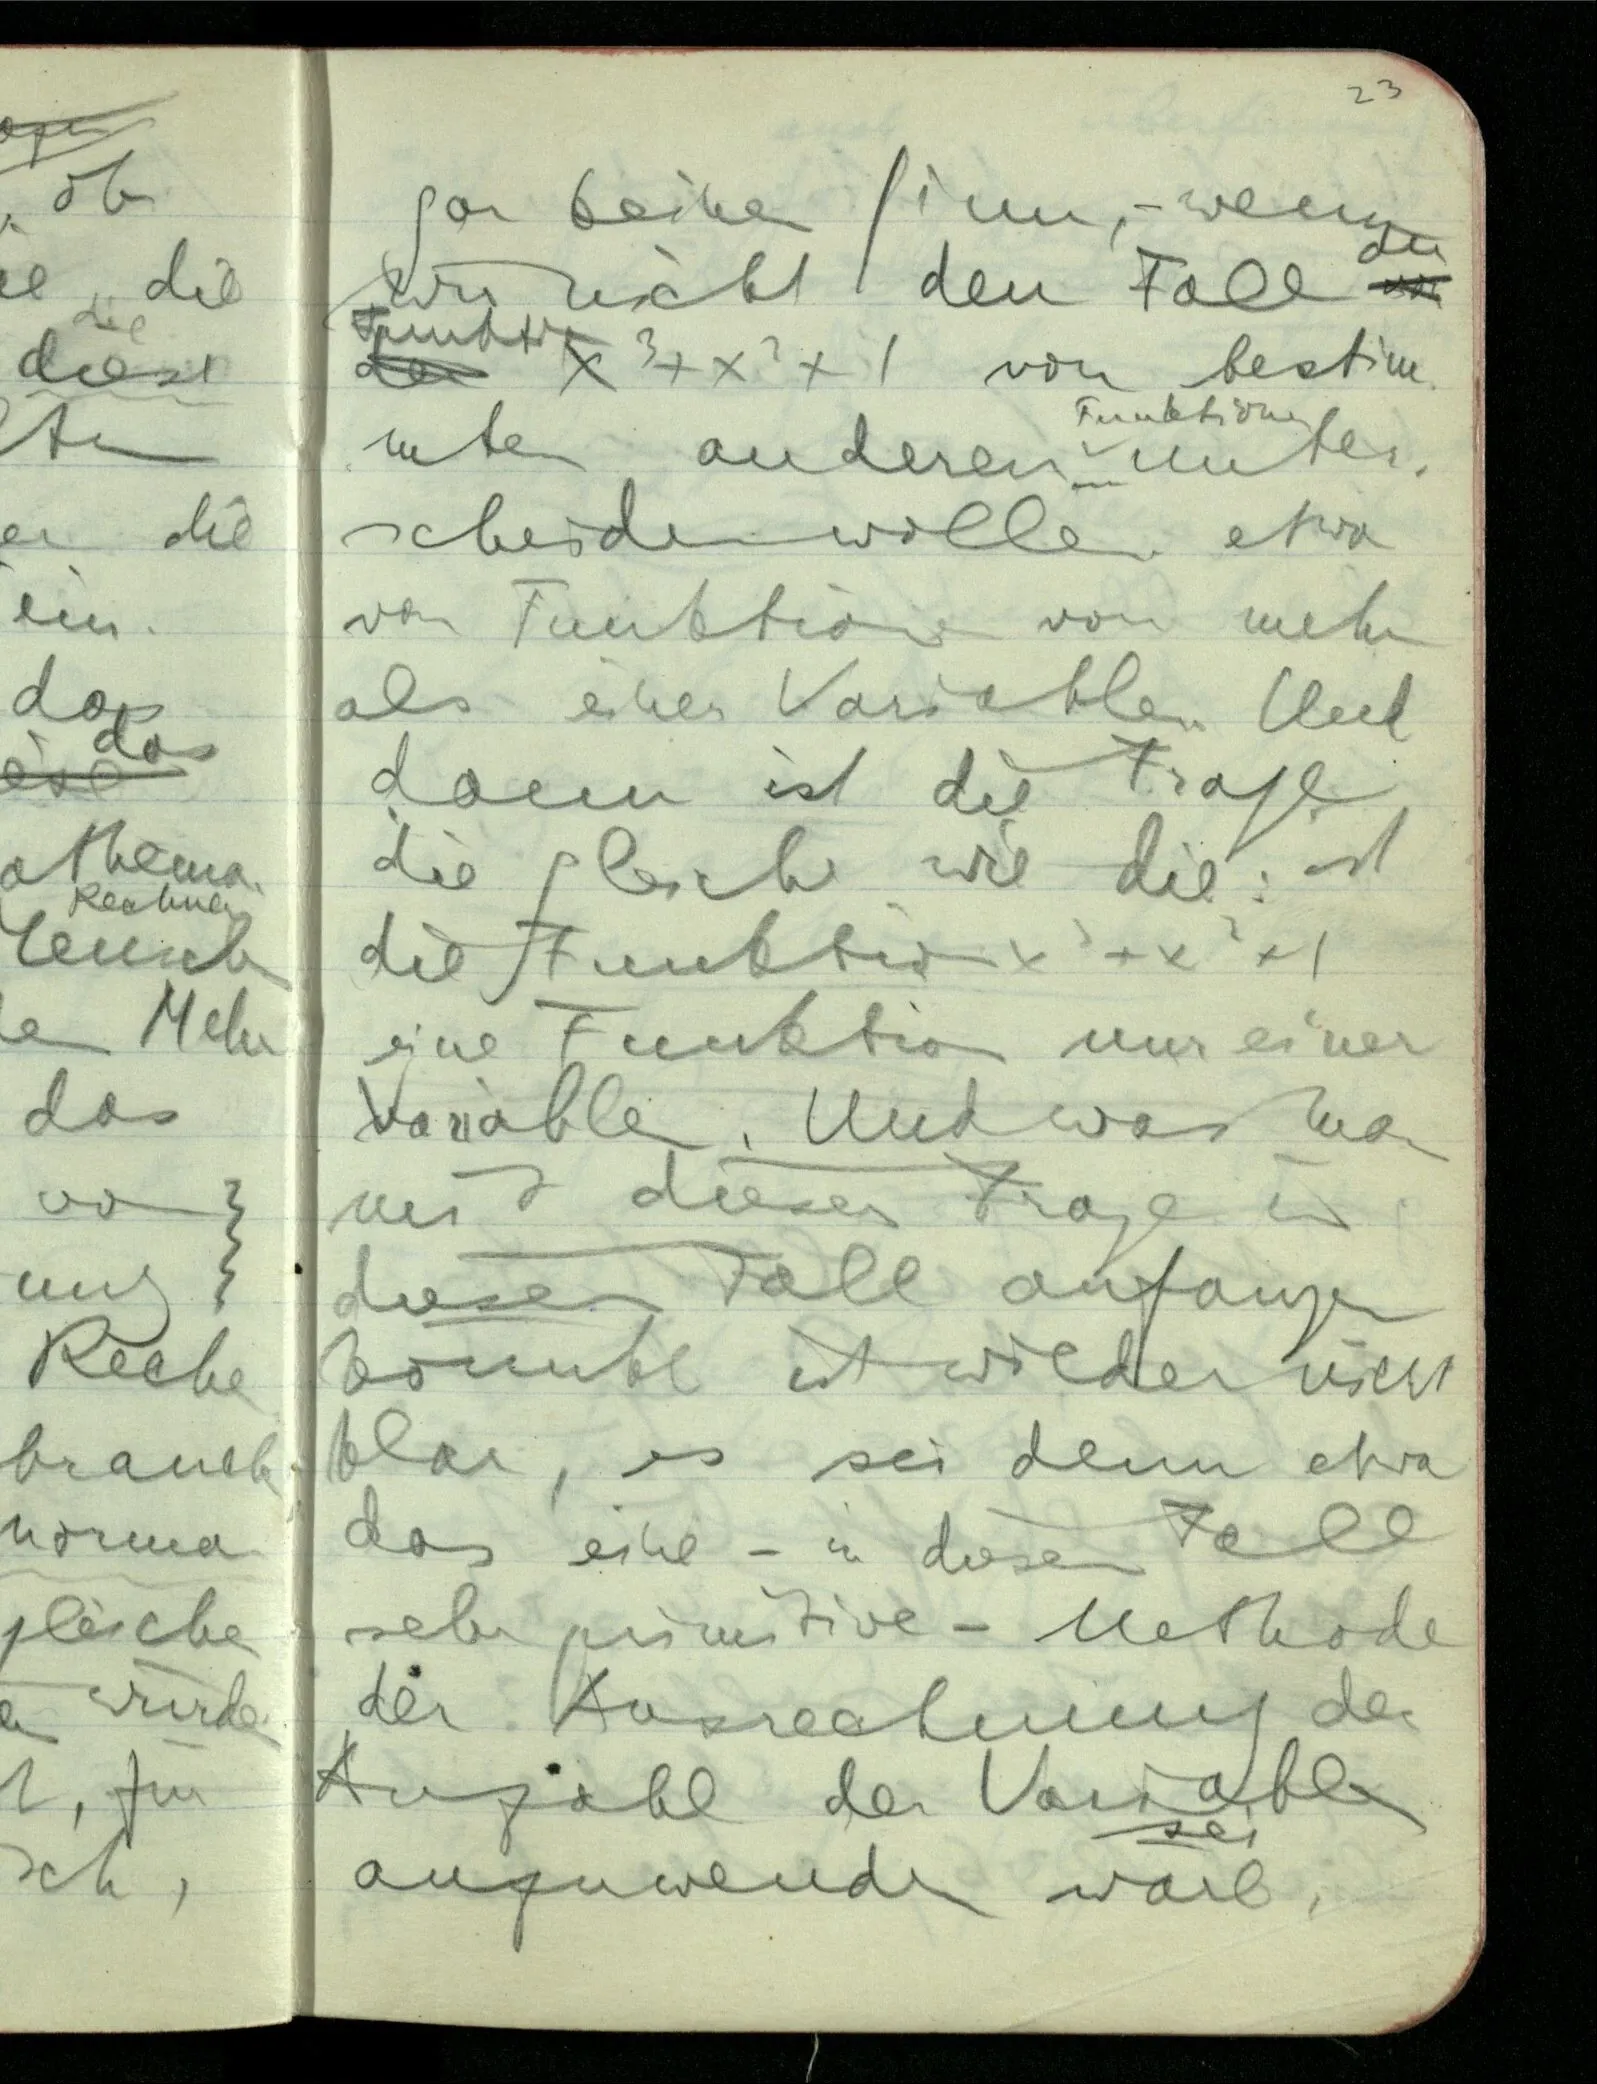 23
ob
die
die
diese
die
ein.
das
das
athema
Rechnen
Mensch
Mehr
das
von
ung
Reche
brauch
norma
gleiche
wurde
, für
sch,
gar keinen Sinn, – wenn
wir nicht den Fall der
Funktion
der x³ + x² + 1 von bestim
Funktionen
mten anderen unter-
scheiden wollen etwa
von Funktionen von mehr
als einer Variablen. Und
dann ist die Frage
die gleiche wie die: ist
die Funktion x³ + x² + 1
eine Funktion nur einer
Variablen. Und was man
mit dieser Frage in
diesem Fall anfangen
könnte ist wieder nicht
klar, es sei denn etwa
das eine – in diesem Fall
sehr primitive – Methode
der Ausrechnung der
Anzahl der Variablen
sei
anzuwenden wäre.